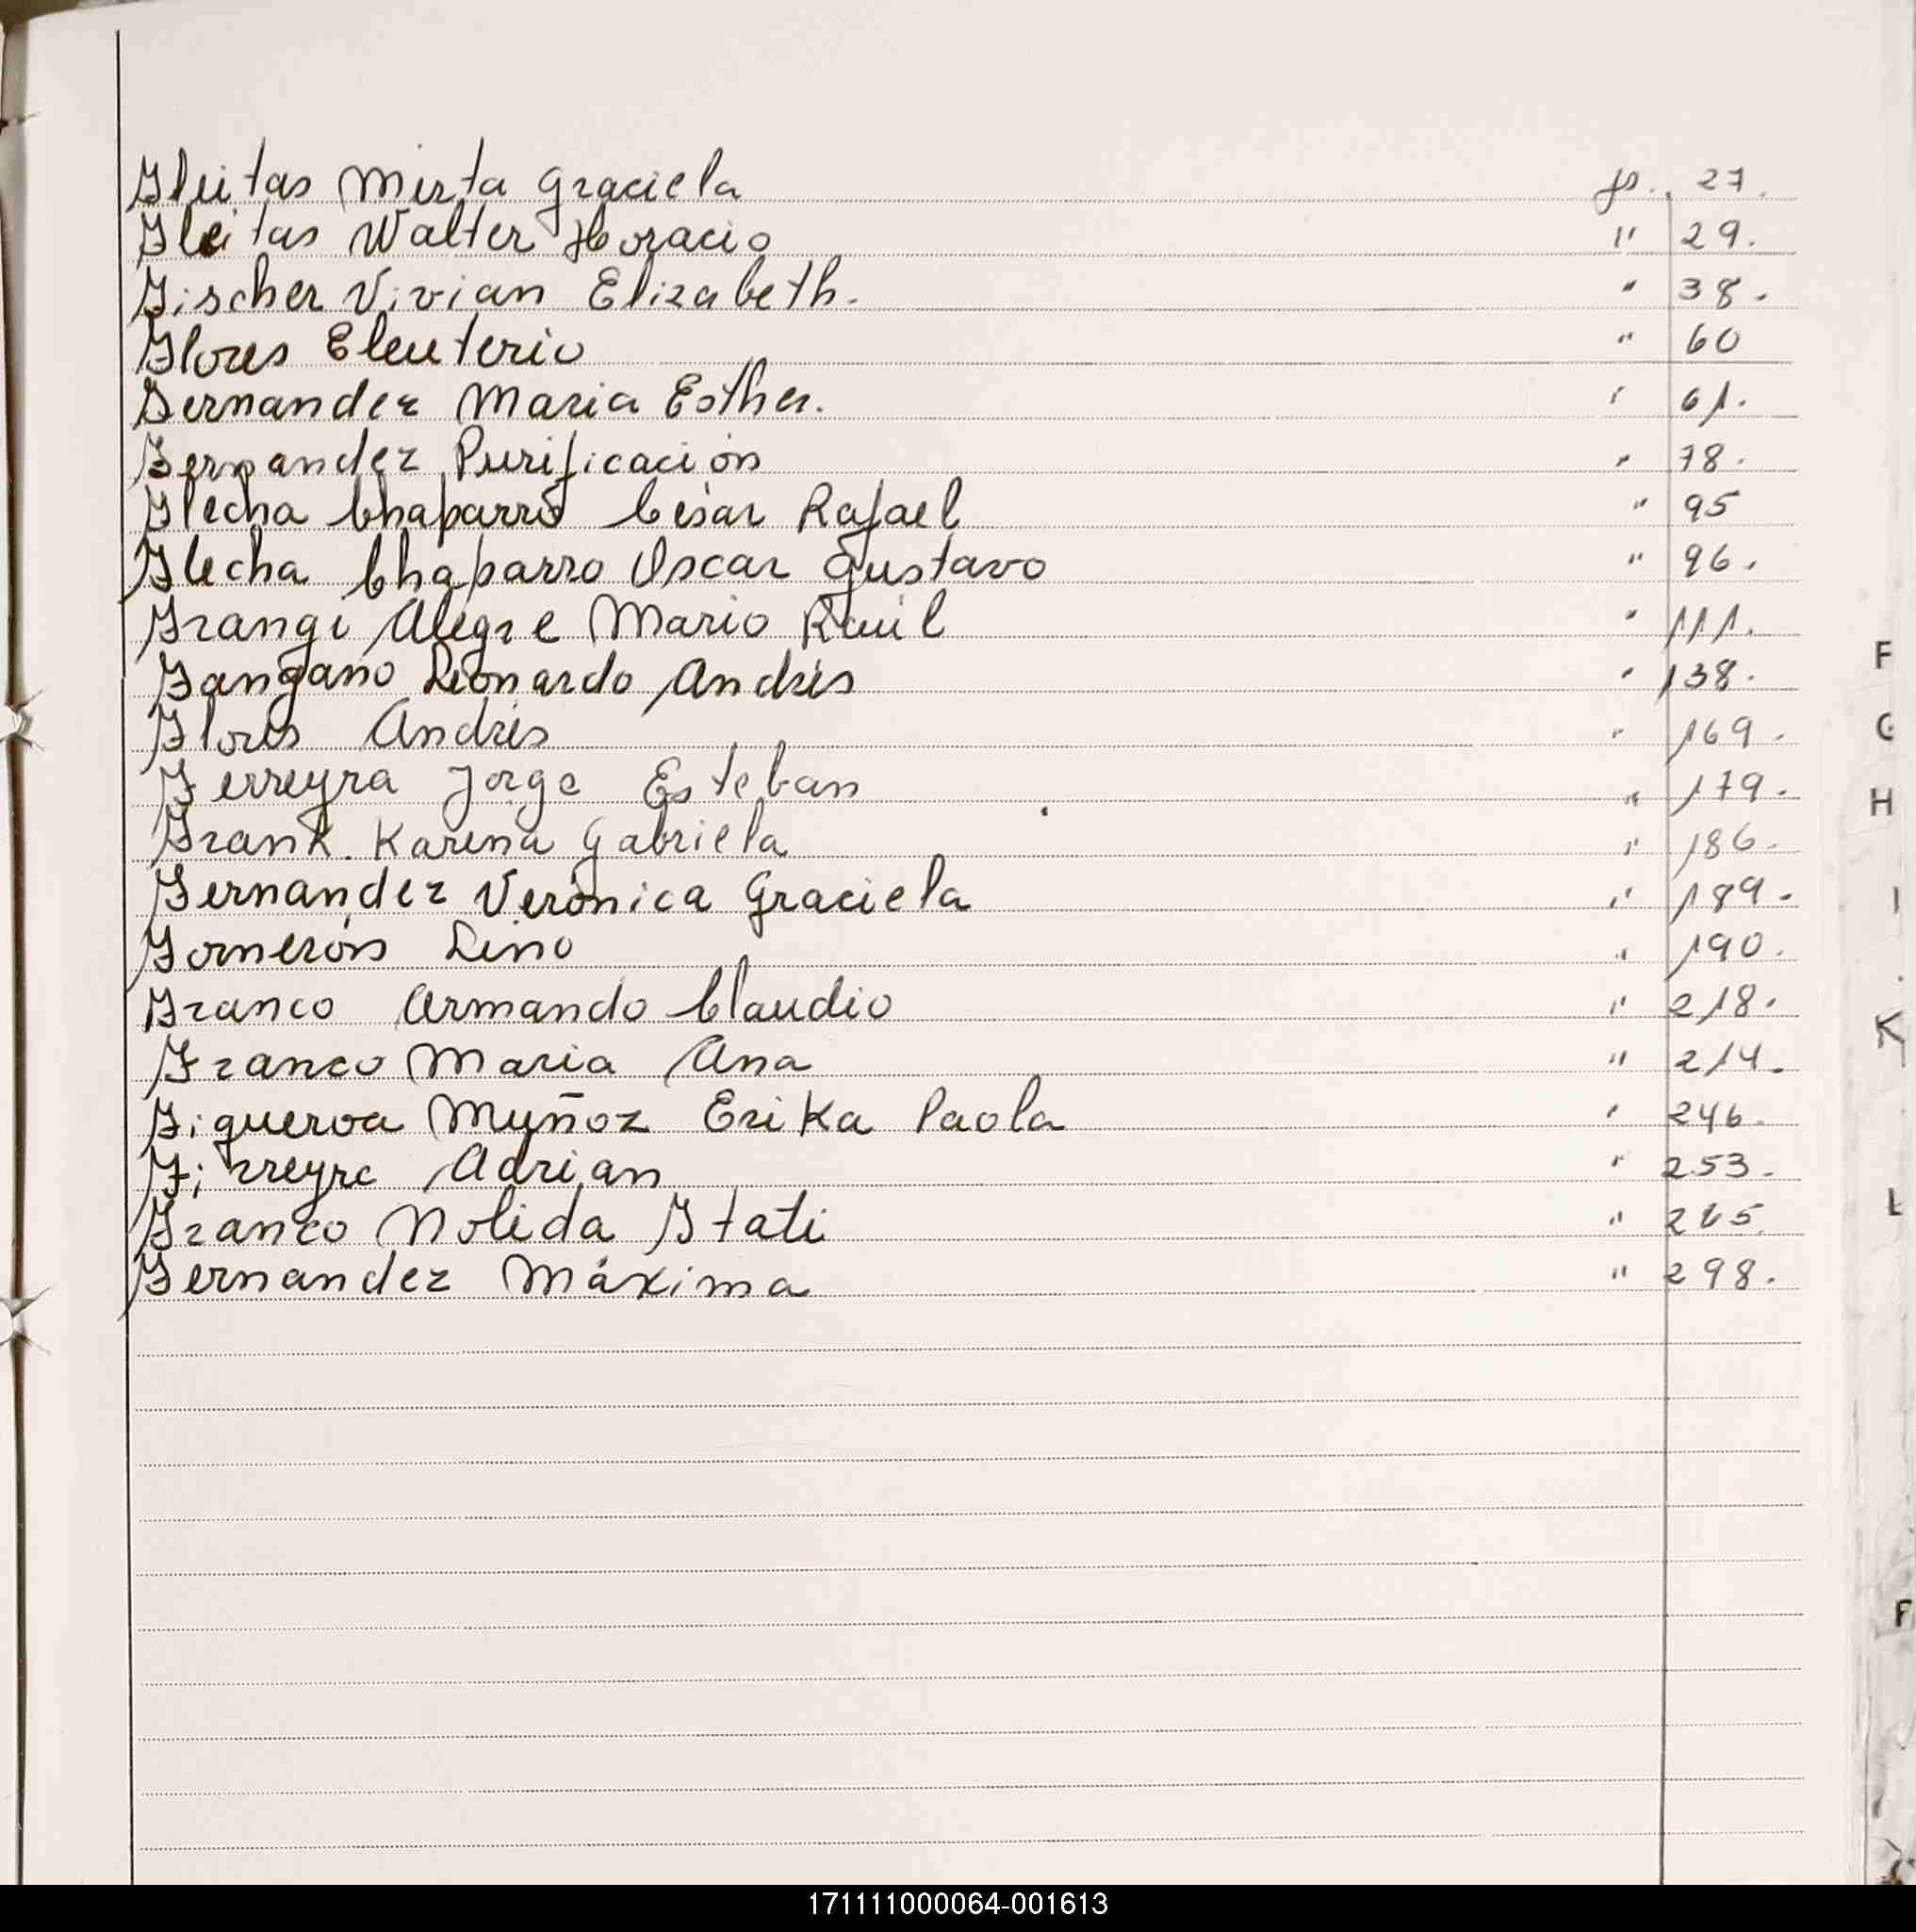 Fleitas Mirta Graciela fs. 27.
Fleitas Walter Horacio " 29.
Fischer Vivian Elizabeth. " 38.
Flores Eleuterio " 60
Fernandez Maria Esther. " 61.
Fernandez Purificación " 78.
Flecha Chaparro César Rafael " 95
Flecha Chaparro Oscar Gustavo " 96.
Frangi Alegre Mario Raúl " 111.
Fangano Leonardo Andrés " 138.
Flores Andrés " 169.
Ferreyra Jorge Esteban " 179.
Frank. Karina Gabriela " 186.
Fernandez Verónica Graciela " 189.
Fornerón Lino " 190.
Franco Armando Claudio " 218.
Franco Maria Ana " 214.
Figueroa Muñoz Erika Paola " 246.
Adrian " 253.
Franco Nolida Itati "
Fernandez Máxima " 298.
F
G
H
I
K
L
F
171111000064-001613